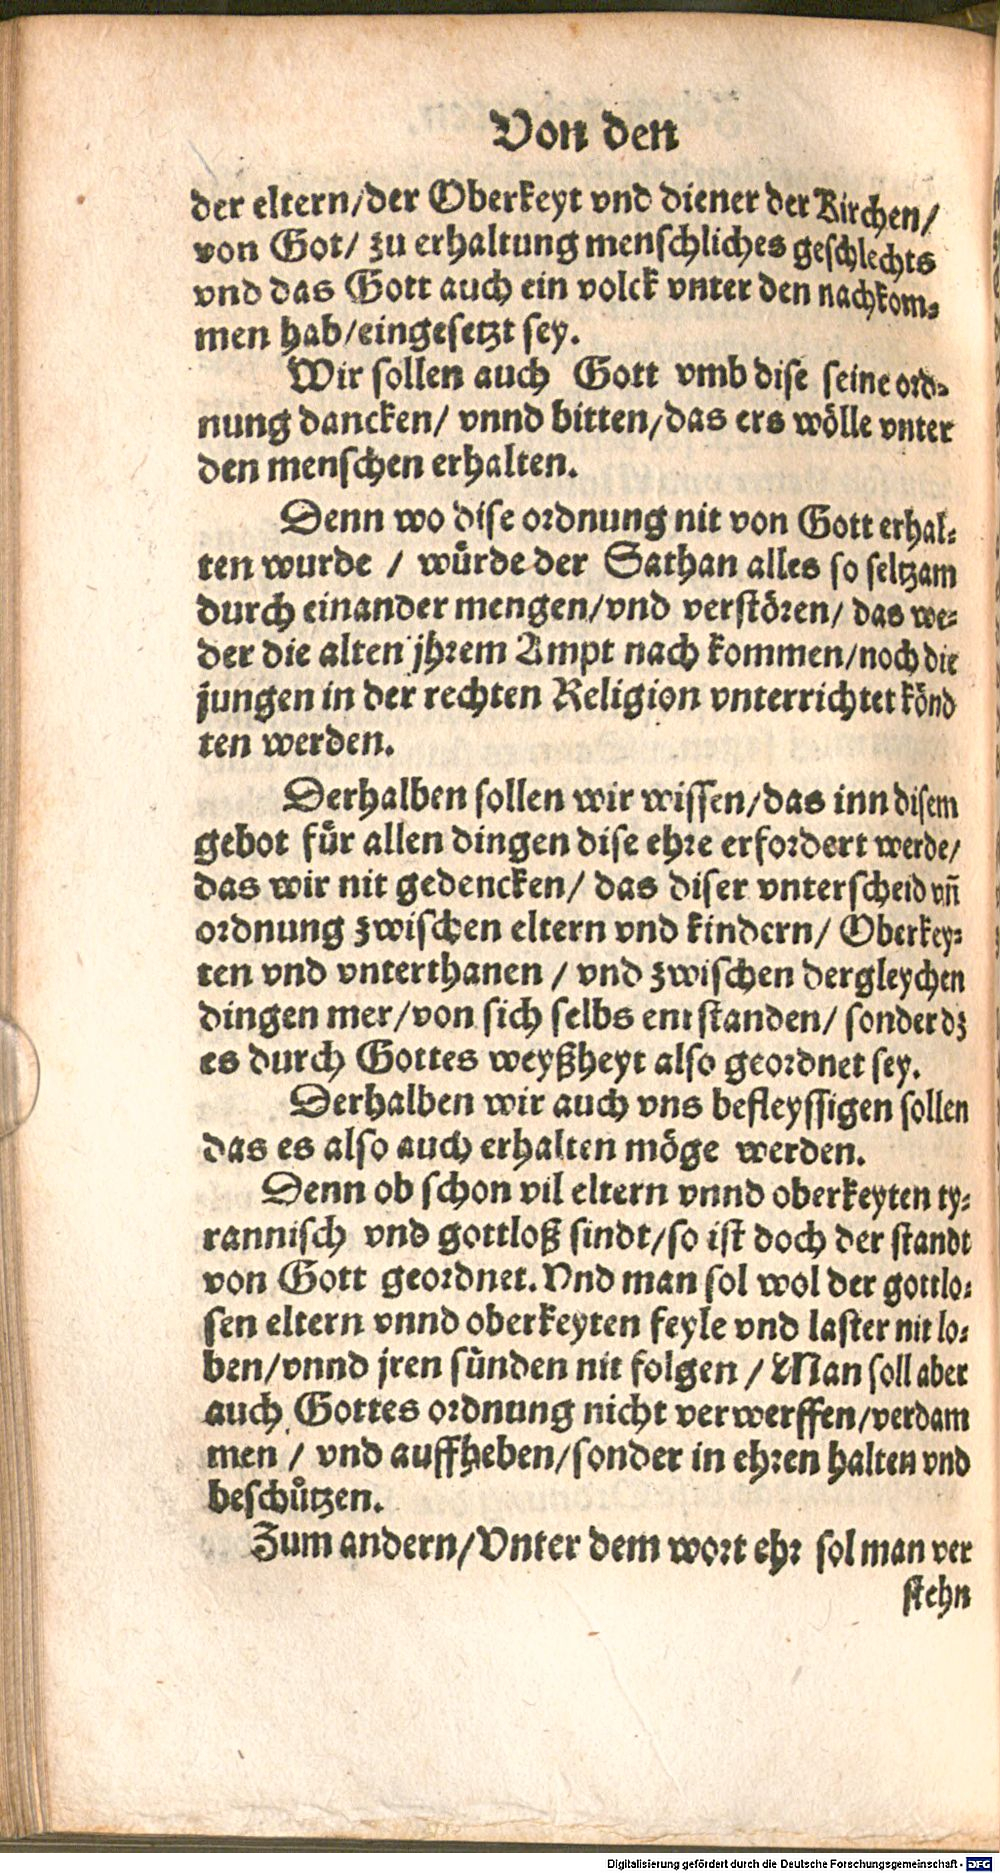 Von den
der eltern/der Oberkeyt vnd diener der Kirchen/
von Got/ zu erhaltung menschliches geschlechts
vnd das Gott auch ein volck vnter den nachkom⸗
men hab/eingesetzt sey.
Wir sollen auch Gott vmb dise seine ord⸗
nung dancken/ vnnd bitten/das ers wölle vnter
den menschen erhalten.
Denn wo dise ordnung nit von Gott erhal⸗
ten wurde / wuͤrde der Sathan alles so seltzam
durch einander mengen/vnd verstören/ das we⸗
der die alten jhrem Ampt nach kommen/noch die
jungen in der rechten Religion vnterrichtet könd
ten werden.
Derhalben sollen wir wissen/das inn disem
gebot fuͤr allen dingen dise ehre erfordert werde/
das wir nit gedencken/ das diser vnterscheid vñ
ordnung zwischen eltern vnd kindern/ Oberkey⸗
ten vnd vnterthanen / vnd zwischen dergleychen
dingen mer/von sich selbs entstanden/ sonder dz
es durch Gottes weyßheyt also geordnet sey.
Derhalben wir auch vns befleyssigen sollen
das es also auch erhalten möge werden.
Denn ob schon vil eltern vnnd oberkeyten ty⸗
rannisch vnd gottloß sindt/so ist doch der standt
von Gott geordnet. Vnd man sol wol der gottlo⸗
sen eltern vnnd oberkeyten feyle vnd laster nit lo⸗
ben/vnnd jren sünden nit folgen / Man soll aber
auch Gottes ordnung nicht verwerffen/verdam
men / vnd auffheben/sonder in ehren halten vnd
beschuͤtzen.
Zum andern/Vnter dem wort ehr sol man ver
stehn
Digitalisierung gefördert durch die Deutsche Forschungsgemeinschaft - DFG